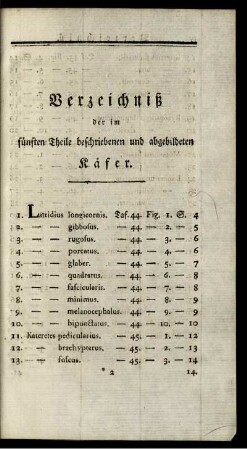 Verzeichniß
der im
fünften Theile beschriebenen und abgebildeten
Käfer.
1. Latridius longicornis. Taf. 44. Fig. 1. S. 4
2. — — gibbosus. — 44. — 2. — 5
3. — — rugosus. — 44. — 3. — 6
4. — — porcatus. — 44. — 4. — 6
5. — — glaber. — 44. — 5. — 7
6. — — quadratus. — 44. — 6. — 8
7. — — fascicularis. — 44. — 7. — 8
8. — — minimus. — 44. — 8. — 9
9. — — melanocephalus. — 44. — 9. — 9
10. — — bipunctatus. — 44. — 10. — 10
11. Kateretes pedicularius. — 45. — 1. — 12
12. — — brachypterus. — 45. — 2. — 13
13. — — fuscus. — 45. — 3. — 14
* 2 14.